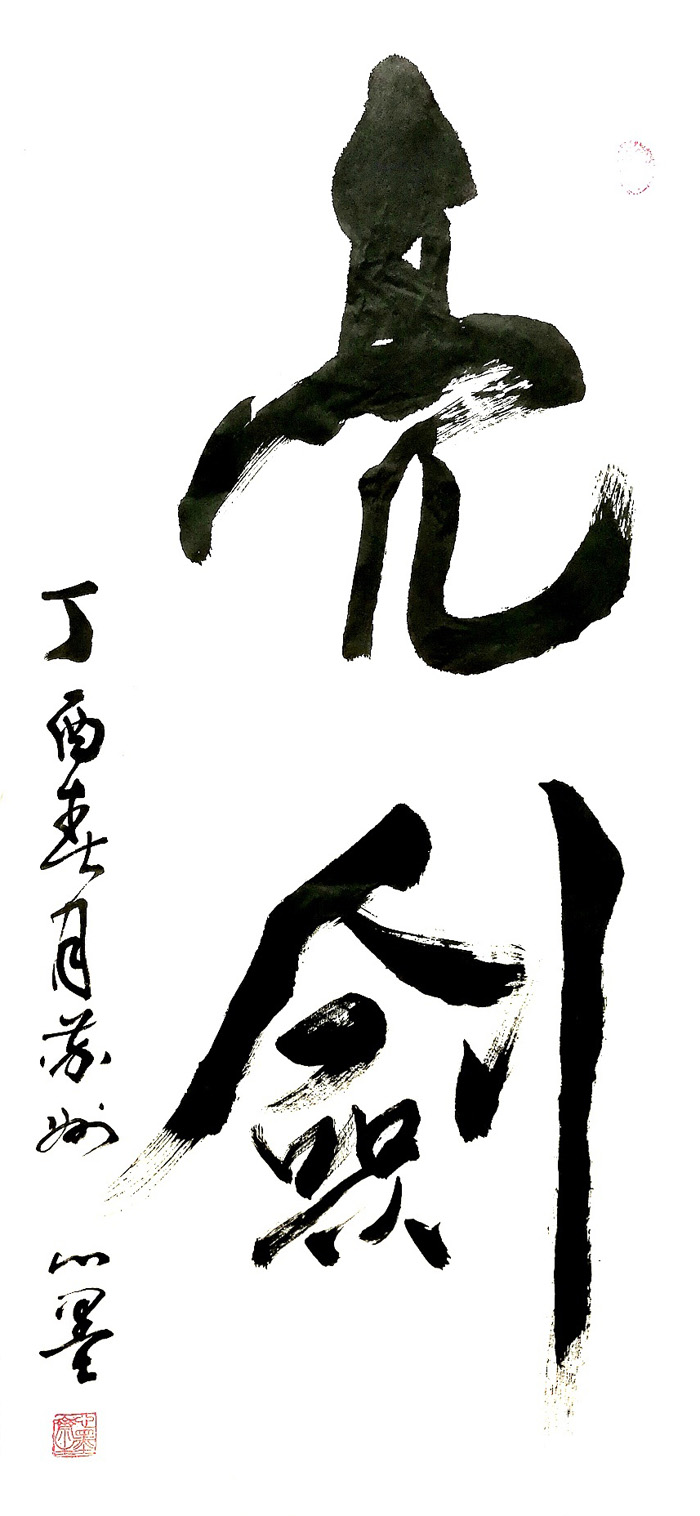 亮劍
丁酉春月蘇州 心墨